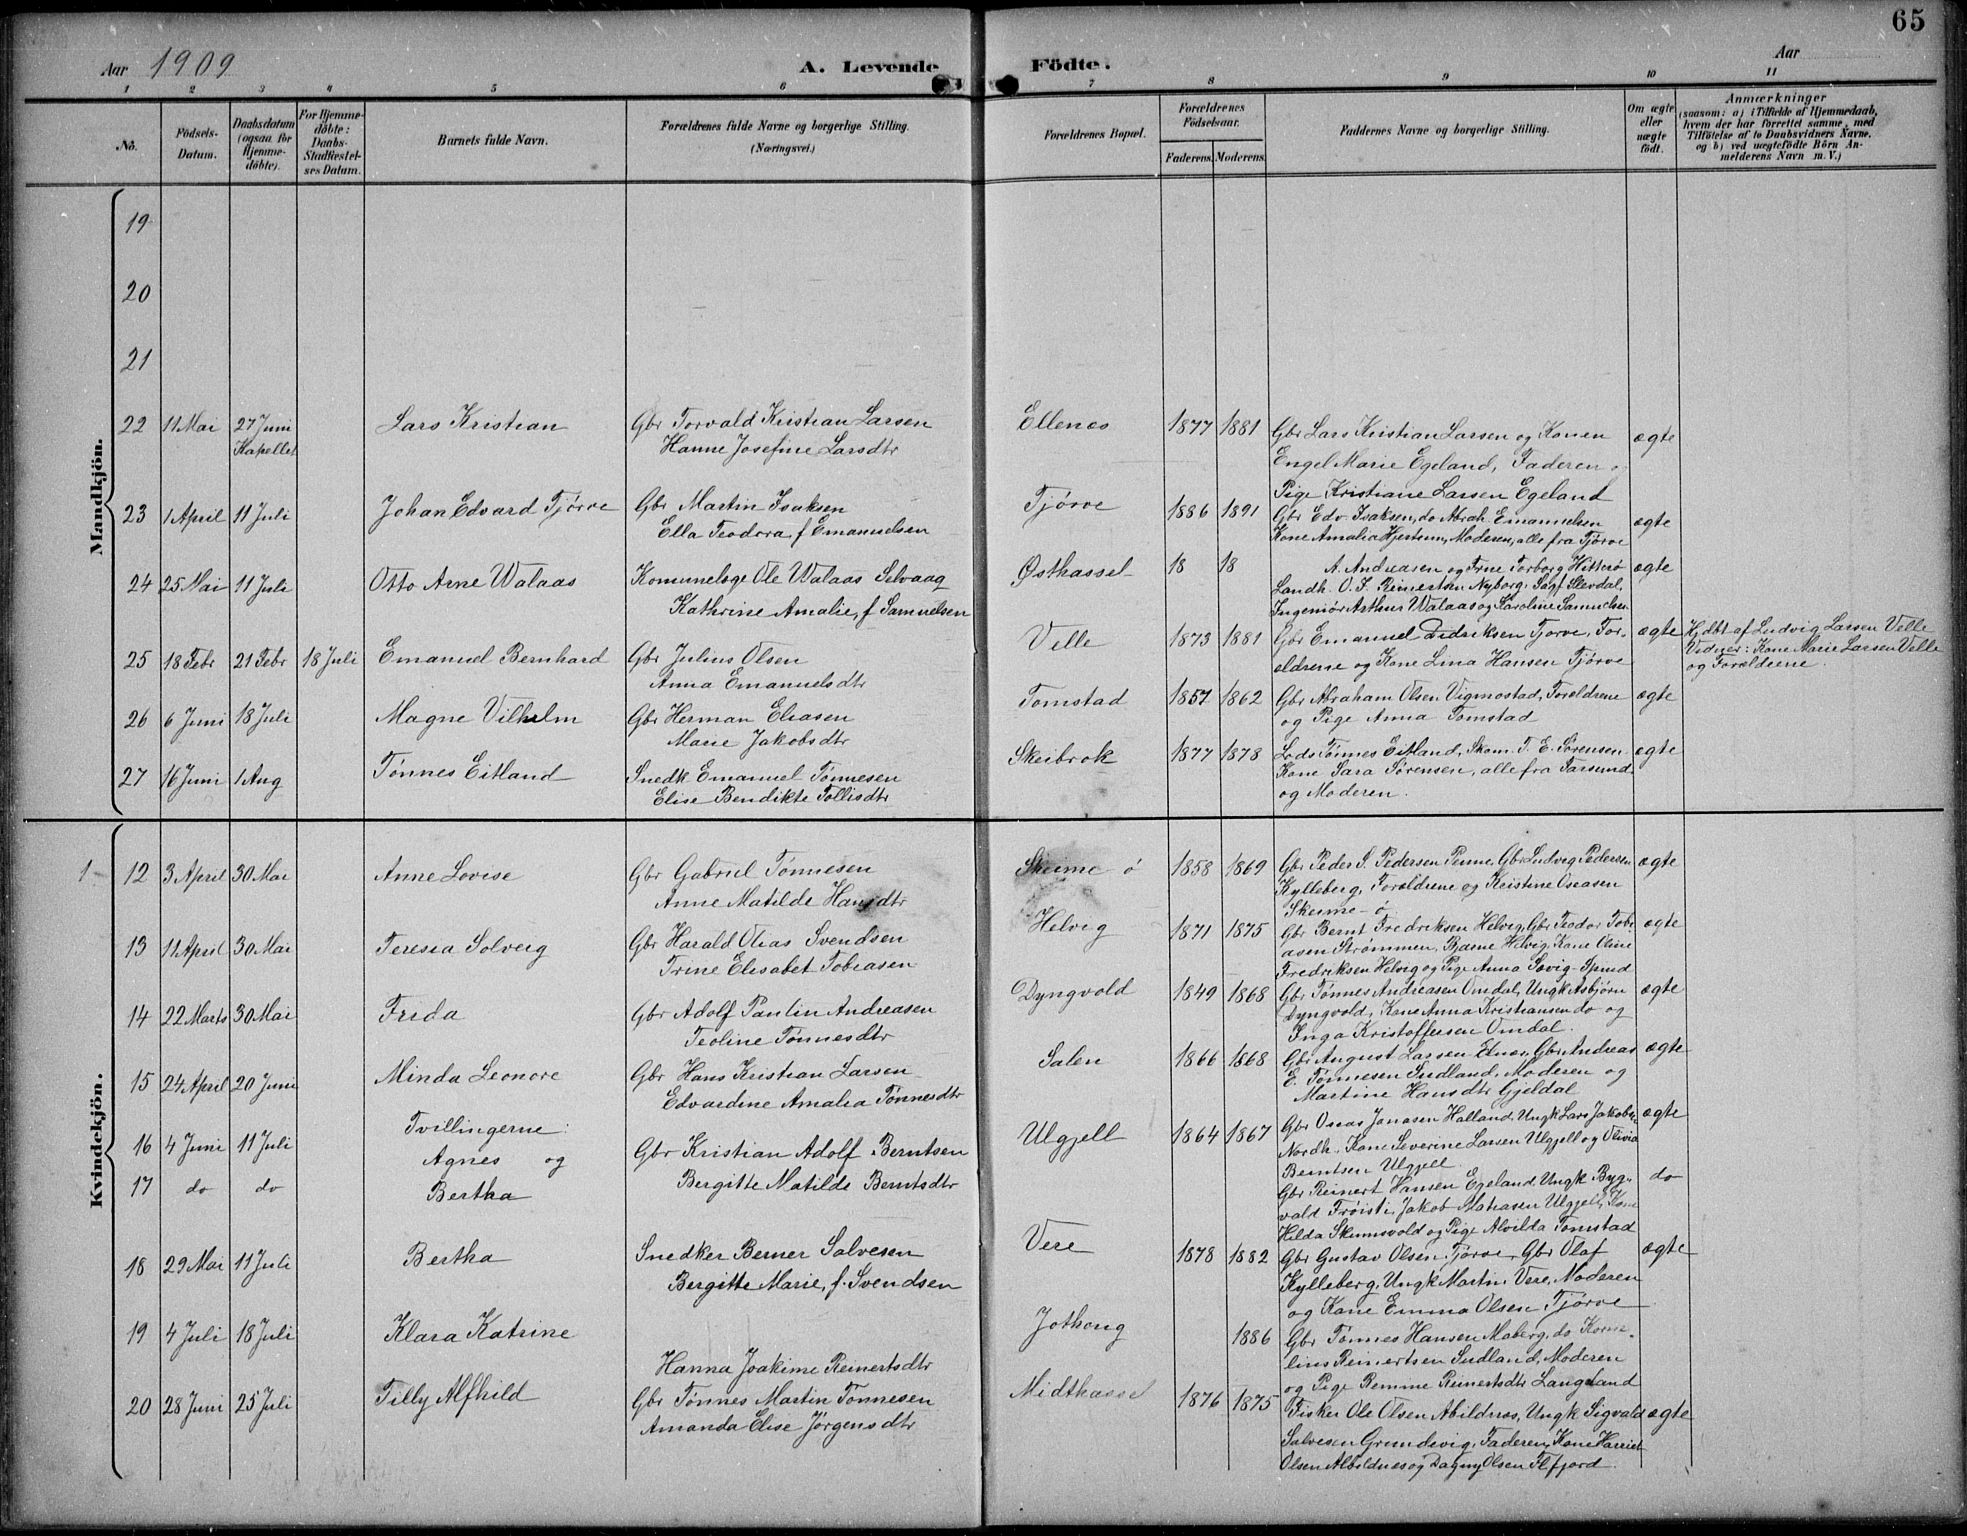 65
Aar 1909
A. Levende Födte.
Aar
1 2 3 4 5 6 7 8 9 10 11
No.
Födsels-Datum.
Daabsdatum (ogsaa for Hjemme-döbte).
For Hjemme-döbte: Daabs-Stadfæstel-ses Datum.
Barnets fulde Navn.
Forældrenes fulde Navne og borgerlige Stilling.
(Næringsvei.)
Forældrenes Bopæl.
Forældrenes Födselsaar.
Faderens. Moderens.
Faddernes Navne og borgerlige Stilling.
Om ægte eller uægte födt.
Anmærkninger
(saasom: a) i Tilfælde af Hjemmedaab, hvem der har forrettet samme, med Tilföielse af to Daabsvidners Navne, og b) ved uægtefödte Börn An-melderens Navn m. V.)
Mandkjön.
19
20
21
22 11 Mai 27 Juni Lars Kristian Gbr Torvald Kristian Larsen Ellenes 1877 1881 Gbr Lars Kristian Larsen og Konen ægte
Kapellet Hanne Josefine Larsdtr Engel Marie Egeland, Faderen
Pige Kristiane Larsen Egeland
23 1 April 11 Juli Johan Edvard Tjørve Gbr Martin Isaksen Tjørve 1886 1891 Gbr Edv. Isaksen, do Abrah. Emanuelsen ægte
Ella Teodora f Emanuelsen Kone Amalia Hjertum, Moderen, alle fra Tjørve
24 25 Mai 11 Juli Otto Arne Walaas Komunelæge Ole Walaas Selvaag Østhassel 18 18 A. Andreasen og Frue Torborg Hitterø ægte
Kathrine Amalie, f Samuelsen Landh. O. F. Reinertsen Nyborg, Sagf Slevdal,
Ingeniør Arthur Walaas og Karoline Samuelsen
25 18 Febr 21 Febr 18 Juli Emanuel Bernhard Gbr Julius Olsen Velle 1873 1881 Gbr Emanuel Didriksen Tjørve, For- ægte Hjdbt af Ludvig Larsen Velle
Anna Emanuelsdtr eldrene og Kone Lina Hansen Tjørve Vidner: Kone Marie Larsen Velle
og Forældrene
26 6 Juni 18 Juli Magne Vilhelm Gbr Herman Eliasen Tomstad 1857 1862 Gbr Abraham Olsen Vigmostad, Forældrene ægte
Marie Jakobsdtr og Pige Anna Tomstad
27 16 Juni 1 Aug Tønnes Eitland Snedk Emanuel Tønnesen Skeibrok 1877 1878 Lods Tønnes Eitland, Skom. T. E. Sørensen ægte
Elise Bendikte Tollisdtr Kone Sara Sørensen, alle fra Farsund
og Moderen.
Kvindekjön.
1 12 3 April 30 Mai Anne Lovise Gbr Gabriel Tønnesen Skeime ö 1858 1869 Gbr Peder S. Pedersen Penne, Gbr Ludvig Pedersen ægte
Anne Matilde Hansdtr Kylleberg, Forældrene og Kristine Oseasen
Skeime - ö
13 11 April 30 Mai Teresia Solveig Gbr Harald Olias Svendsen Helvig 1871 1875 Gbr Bernt Fredriksen Helvig, Gbr Teodor Tobi ægte
Trine Elisabet Tobiasen asen Strømmen, Bjarne Helvig, Kone Oline
Fredriksen Helvig og Pige Anna Søvig-Spind
14 22 Marts 30 Mai Frida Gbr Adolf Paulin Andreasen Dyngvold 1849 1868 Gbr Tønnes Andreasen Omdal, Ungk Asbjørn ægte
Teoline Tønnesdtr Dyngvold, Kone Anna Kristiansen do og
Inga Kristoffersen Omdal.
15 24 April 20 Juni Minda Leonore Gbr Hans Kristian Larsen Salen 1866 1868 Gbr August Larsen Gbr Andreas ægte
Edvardine Amalia Tønnesdtr E. Tønnesen Sudland, Moderen og
Martine Hansdtr Gjeldal
Tvillingerne:
16 4 Juni 11 Juli Agnes og Gbr Kristian Adolf Berntsen Ulgjell 1864 1867 Gbr Oseas Jonasen Halland, Ungk Lars Jakobsen ægte
Nordh. Kone Severine Larsen Ulgjell og Olivia
Berntsen Ulgjell
17 do do Bertha Bergitte Matilde Berntsdtr Gbr Reinert Hansen Egeland, Ungk Byg- do
vold Frøisti, Jakob Ulgjell, Kone
Hilda Skumsvold og Pige Alvilda Tomstad
18 29 Mai 11 Juli Bertha Snedker Berner Salvesen Vere 1878 1882 Gbr Gustav Olsen Tjørve, Gbr Olaf ægte
Bergitte Marie, f. Svendsen Kylleberg, Ungk Martin Vere, Moderen
og Kone Emma Olsen Tjørve
19 4 Juli 18 Juli Klara Katrine Jothong 1886 Gbr Tønnes Hansen Maberg, do Korne-
Hanna Joakime Reinertsdtr lius Reinertsen Sudland, Moderen
og Pige Remine Reinertsdtr Langeland
20 28 Juni 25 Juli Tilly Alfhild Gbr Tønnes Martin Tønnesen Midthassel 1876 1875 Fisker Ole Olsen Abildsnes, Ungk Sigvald ægte
Amanda Elise Jørgensdtr Salvesen Grundevig, Faderen, Kone Harriet
Olsen Abildnes og Dagny Olsen Flfjord.